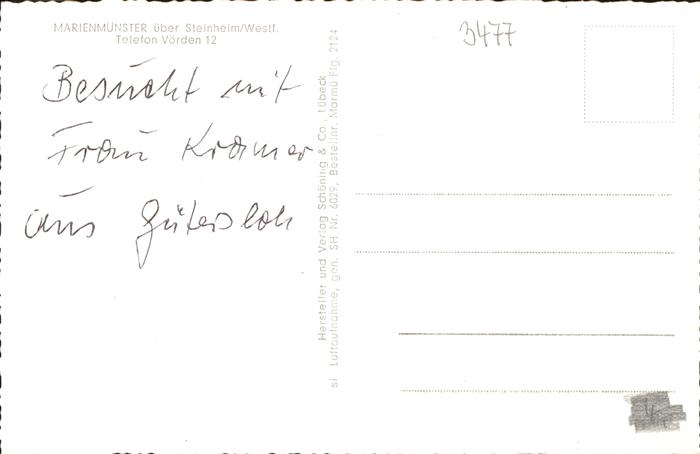 MARIENMÜNSTER über Steinheim/Westf.
Telefon Vörden 12
Besucht mit
Frau Kramer
aus Gütersloh
Hersteller und Verlag Schöning & Co., Lübeck
si Luftaufnahme, gen. SH Nr. 6029, Bestellnr. Marmü Flg. 2124
3477